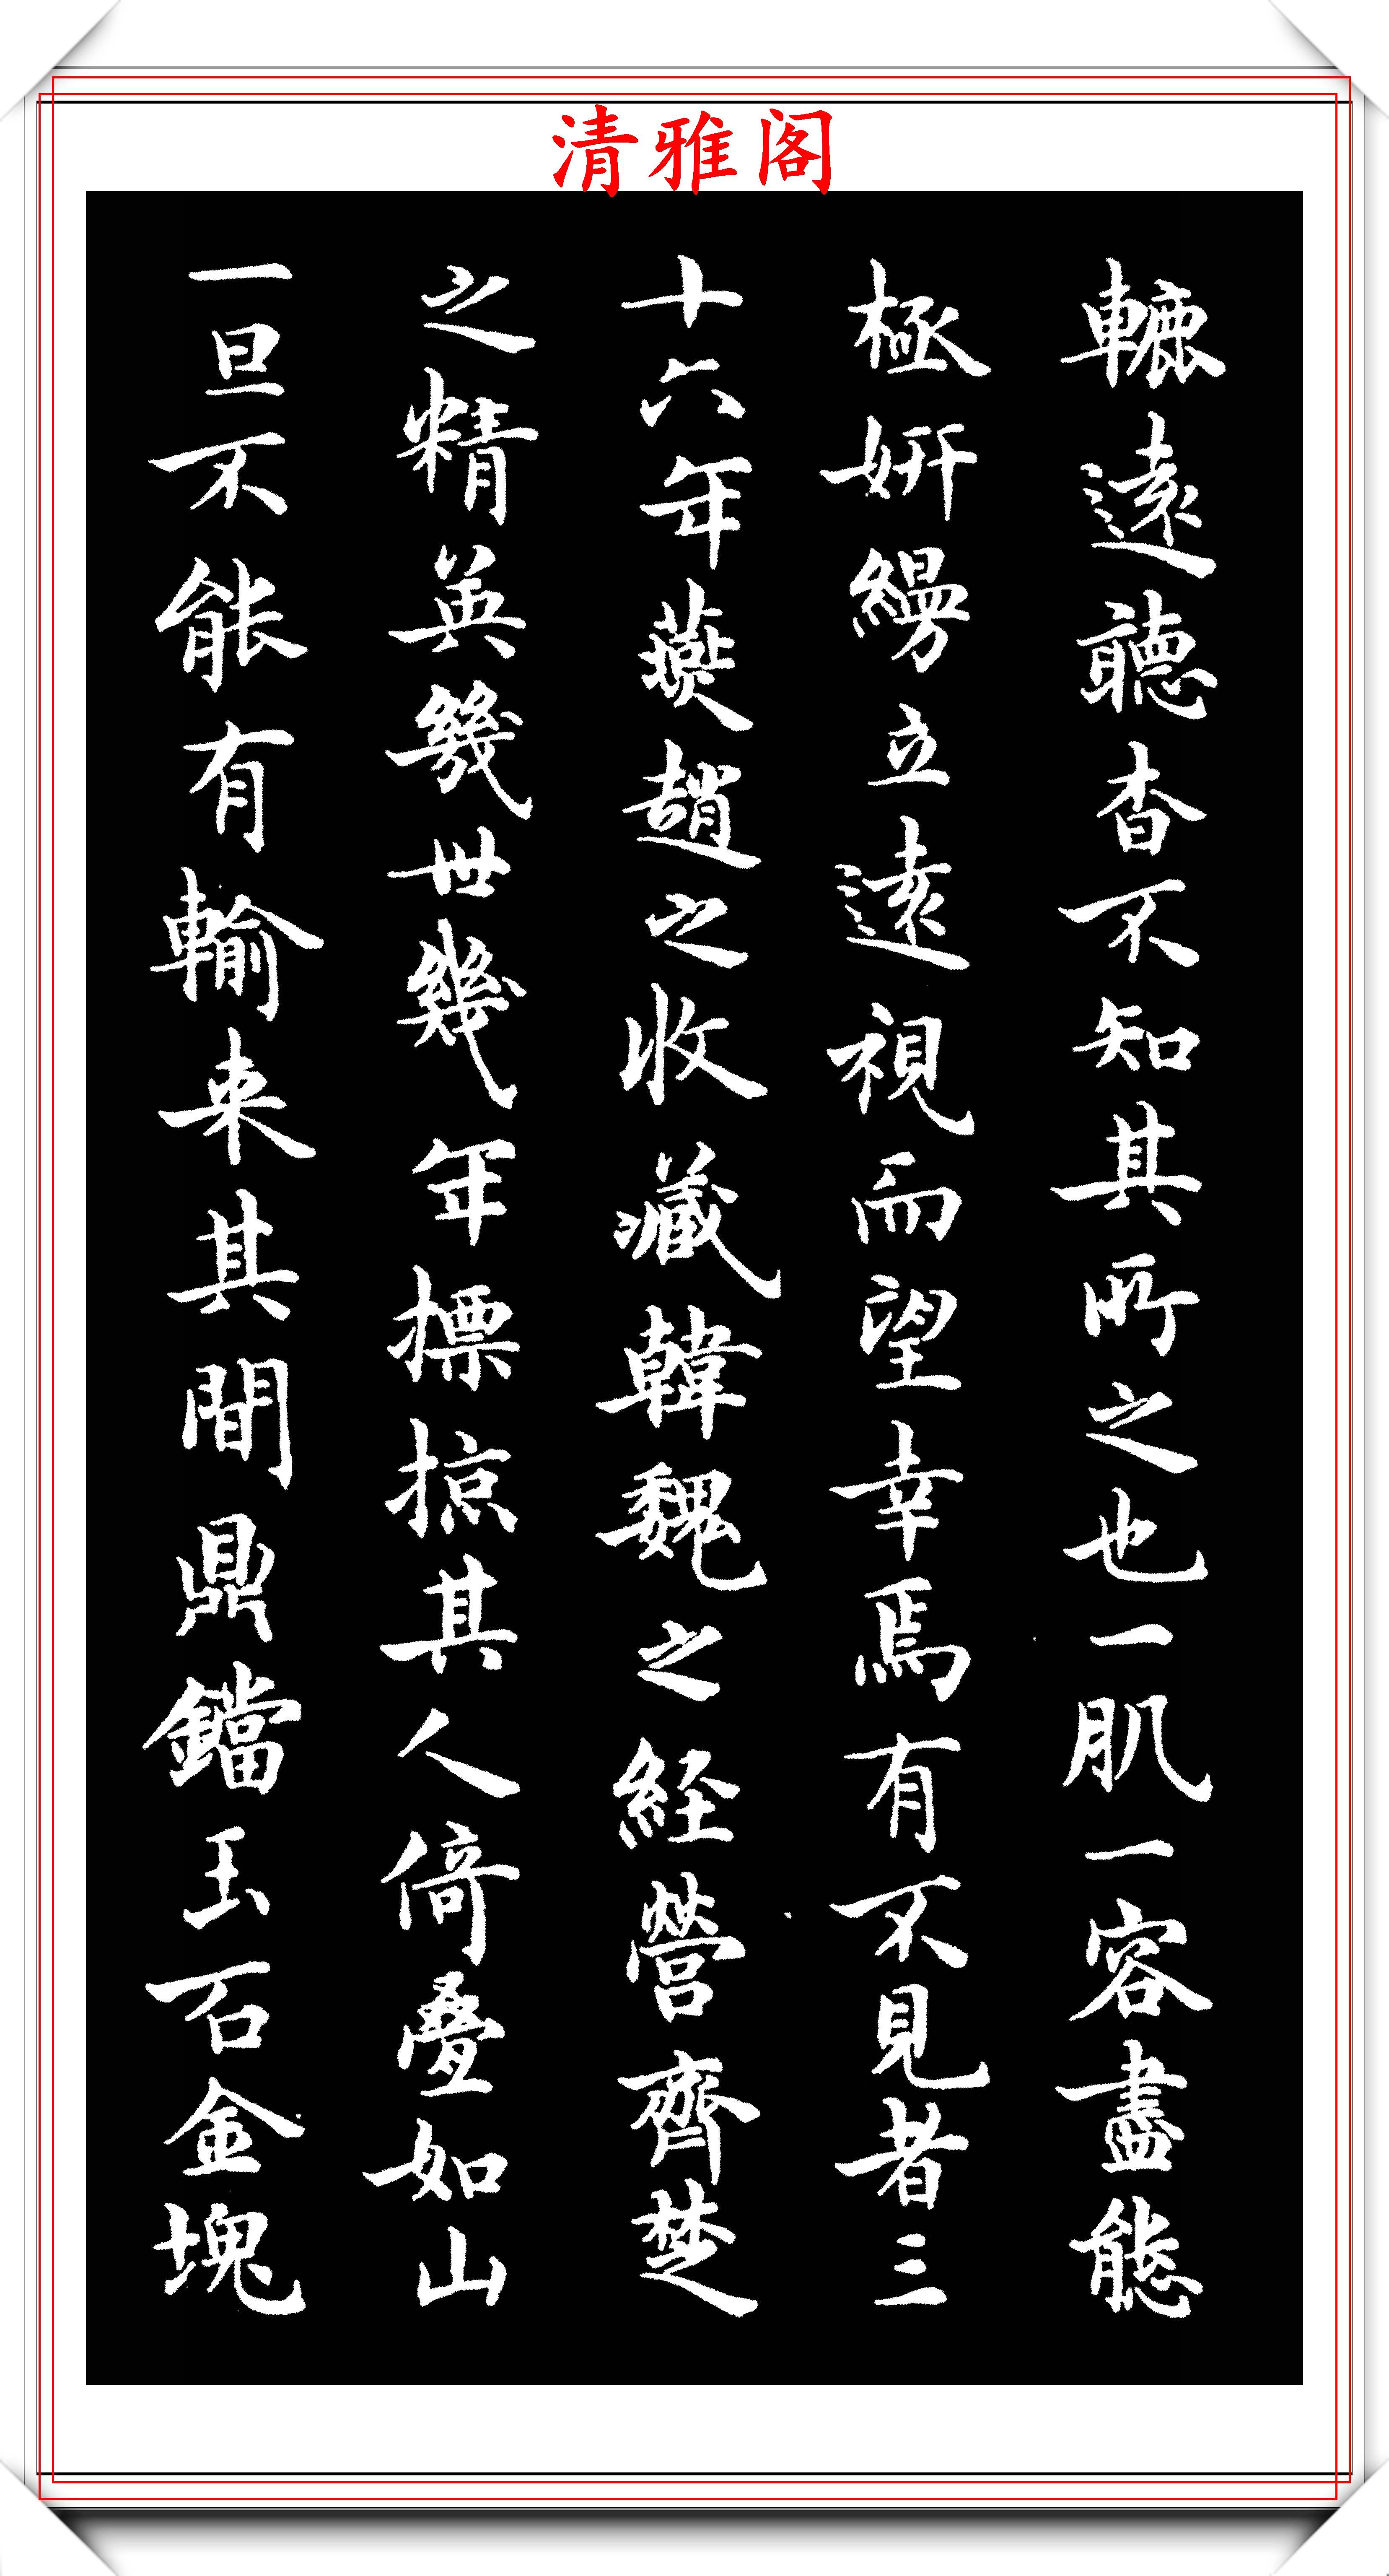 清雅阁
轆遠聽杳不知其所之也一肌一容盡態
極妍縵立遠視而望幸焉有不見者三
十六年燕趙之收藏韓魏之経營齊楚
之精英幾世幾年摽掠其人倚疊如山
一旦不能有輸来其間鼎鐺玉石金塊